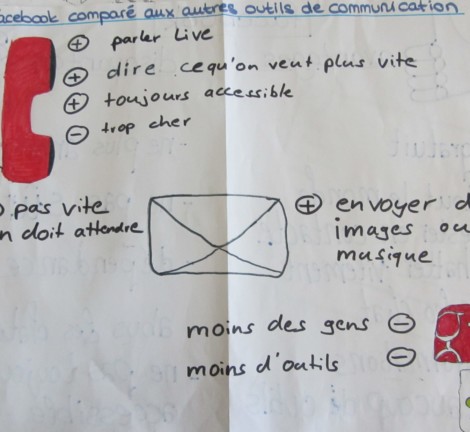 acebook comparé aux autres outils de communication
⊕ parler Live
⊕ dire cequ'on veut plus vite
⊕ toujours accessible
⊖ trop cher
pas vite
n doit attendre
⊕ envoyer d
images ou
musique
moins des gens ⊖
moins d'outils ⊖